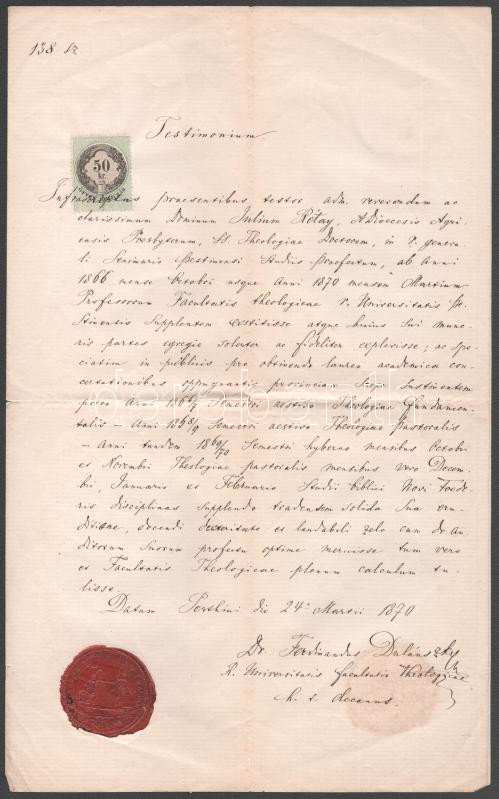 138 sz
Testimonium
50
kr.
Infrascriptus praesentibus testor adm. reverendum ac
clarissimum Dominum Julium Rétay, A Dioecesis Agri-
ensis Presbyterum, SS. Theologiae Doctorem, in genera-
li Seminario Pestinensi Studiis Praefectum, ab Anni
1866 mense Octobri usque Anni 1870 mensem Martium
Professorum Facultatis theologicae r. Universitatis Pe-
stinensis Supplentem exstitisse atque huius sui mune-
ris partes egregie solerter ac fideliter explevisse; ac spe-
ciatim in publicis pro obtinenda laurea academica con-
certationibus oppugnantis provinciam saepe sustinentem
porro Anni 1866/7 Semestri aestivo Theologiae fundamen-
talis Anni 1868/9 Semestri aestivo Theologiae pastoralis
— Anni tandem 1869/70 Semestri hyberno mensibus Octobri
et Novembri Theologiae pastoralis mensibus vero Decem-
bri, Januario et Februario Studii biblici Novi Foede-
ris disciplinas supplendo tradentem solida sua eru-
ditione, docendi dexteritate et laudabili zelo cum de Au-
ditorum suorum profectu optime meruisse tum vero
et Facultatis Theologicae plenum calculum tu-
lisse.
Datum Pestini die 24a Martii 1870
Dr. Ferdinandus Dulánszky
R. Universitatis facultatis Theologicae
h. t. decanus.